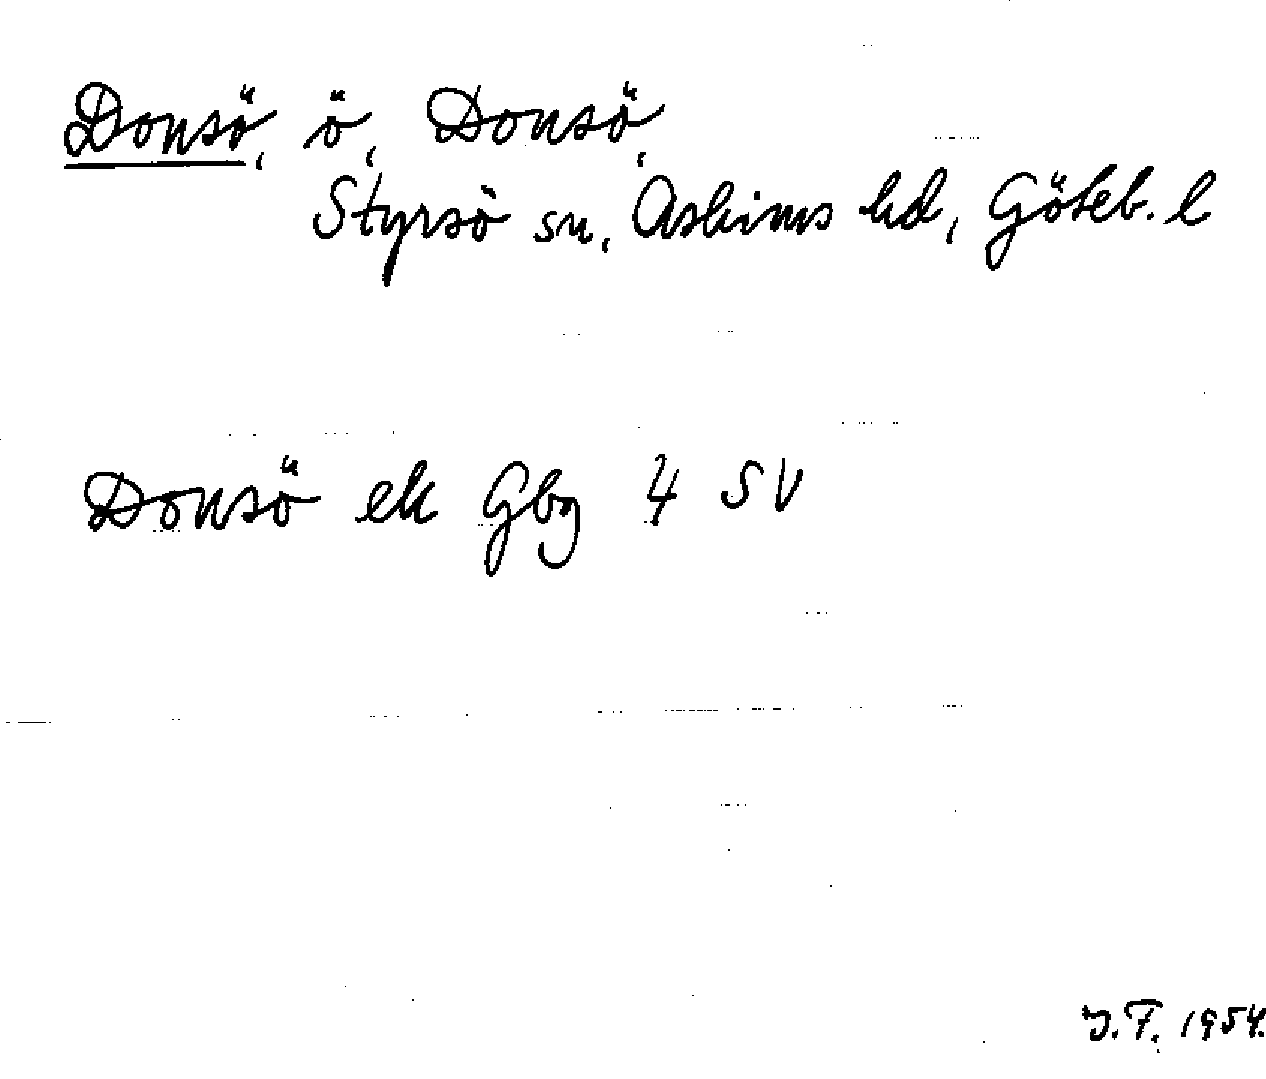 Donsö, ö, Donsö,
Styrsö sn, Askims hd, Göteb. l
Donsö ek Gbg 4 SV
J.F. 1954.